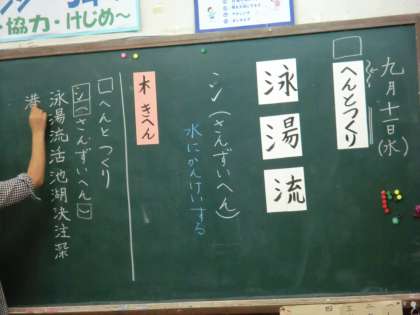 協力・けじめ~
九月十一日(水)
へんとつくり
泳
湯
流
氵(さんずいへん)
水にかんけいする
木 きへん
へんとつくり
氵(さんずいへん)
泳湯流活池湖決注深
港